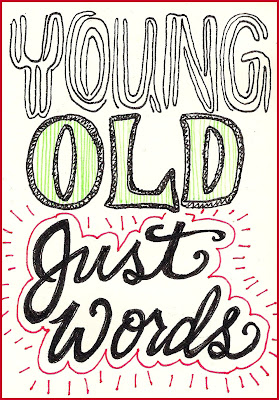 YOUNG
OLD
Just
Words